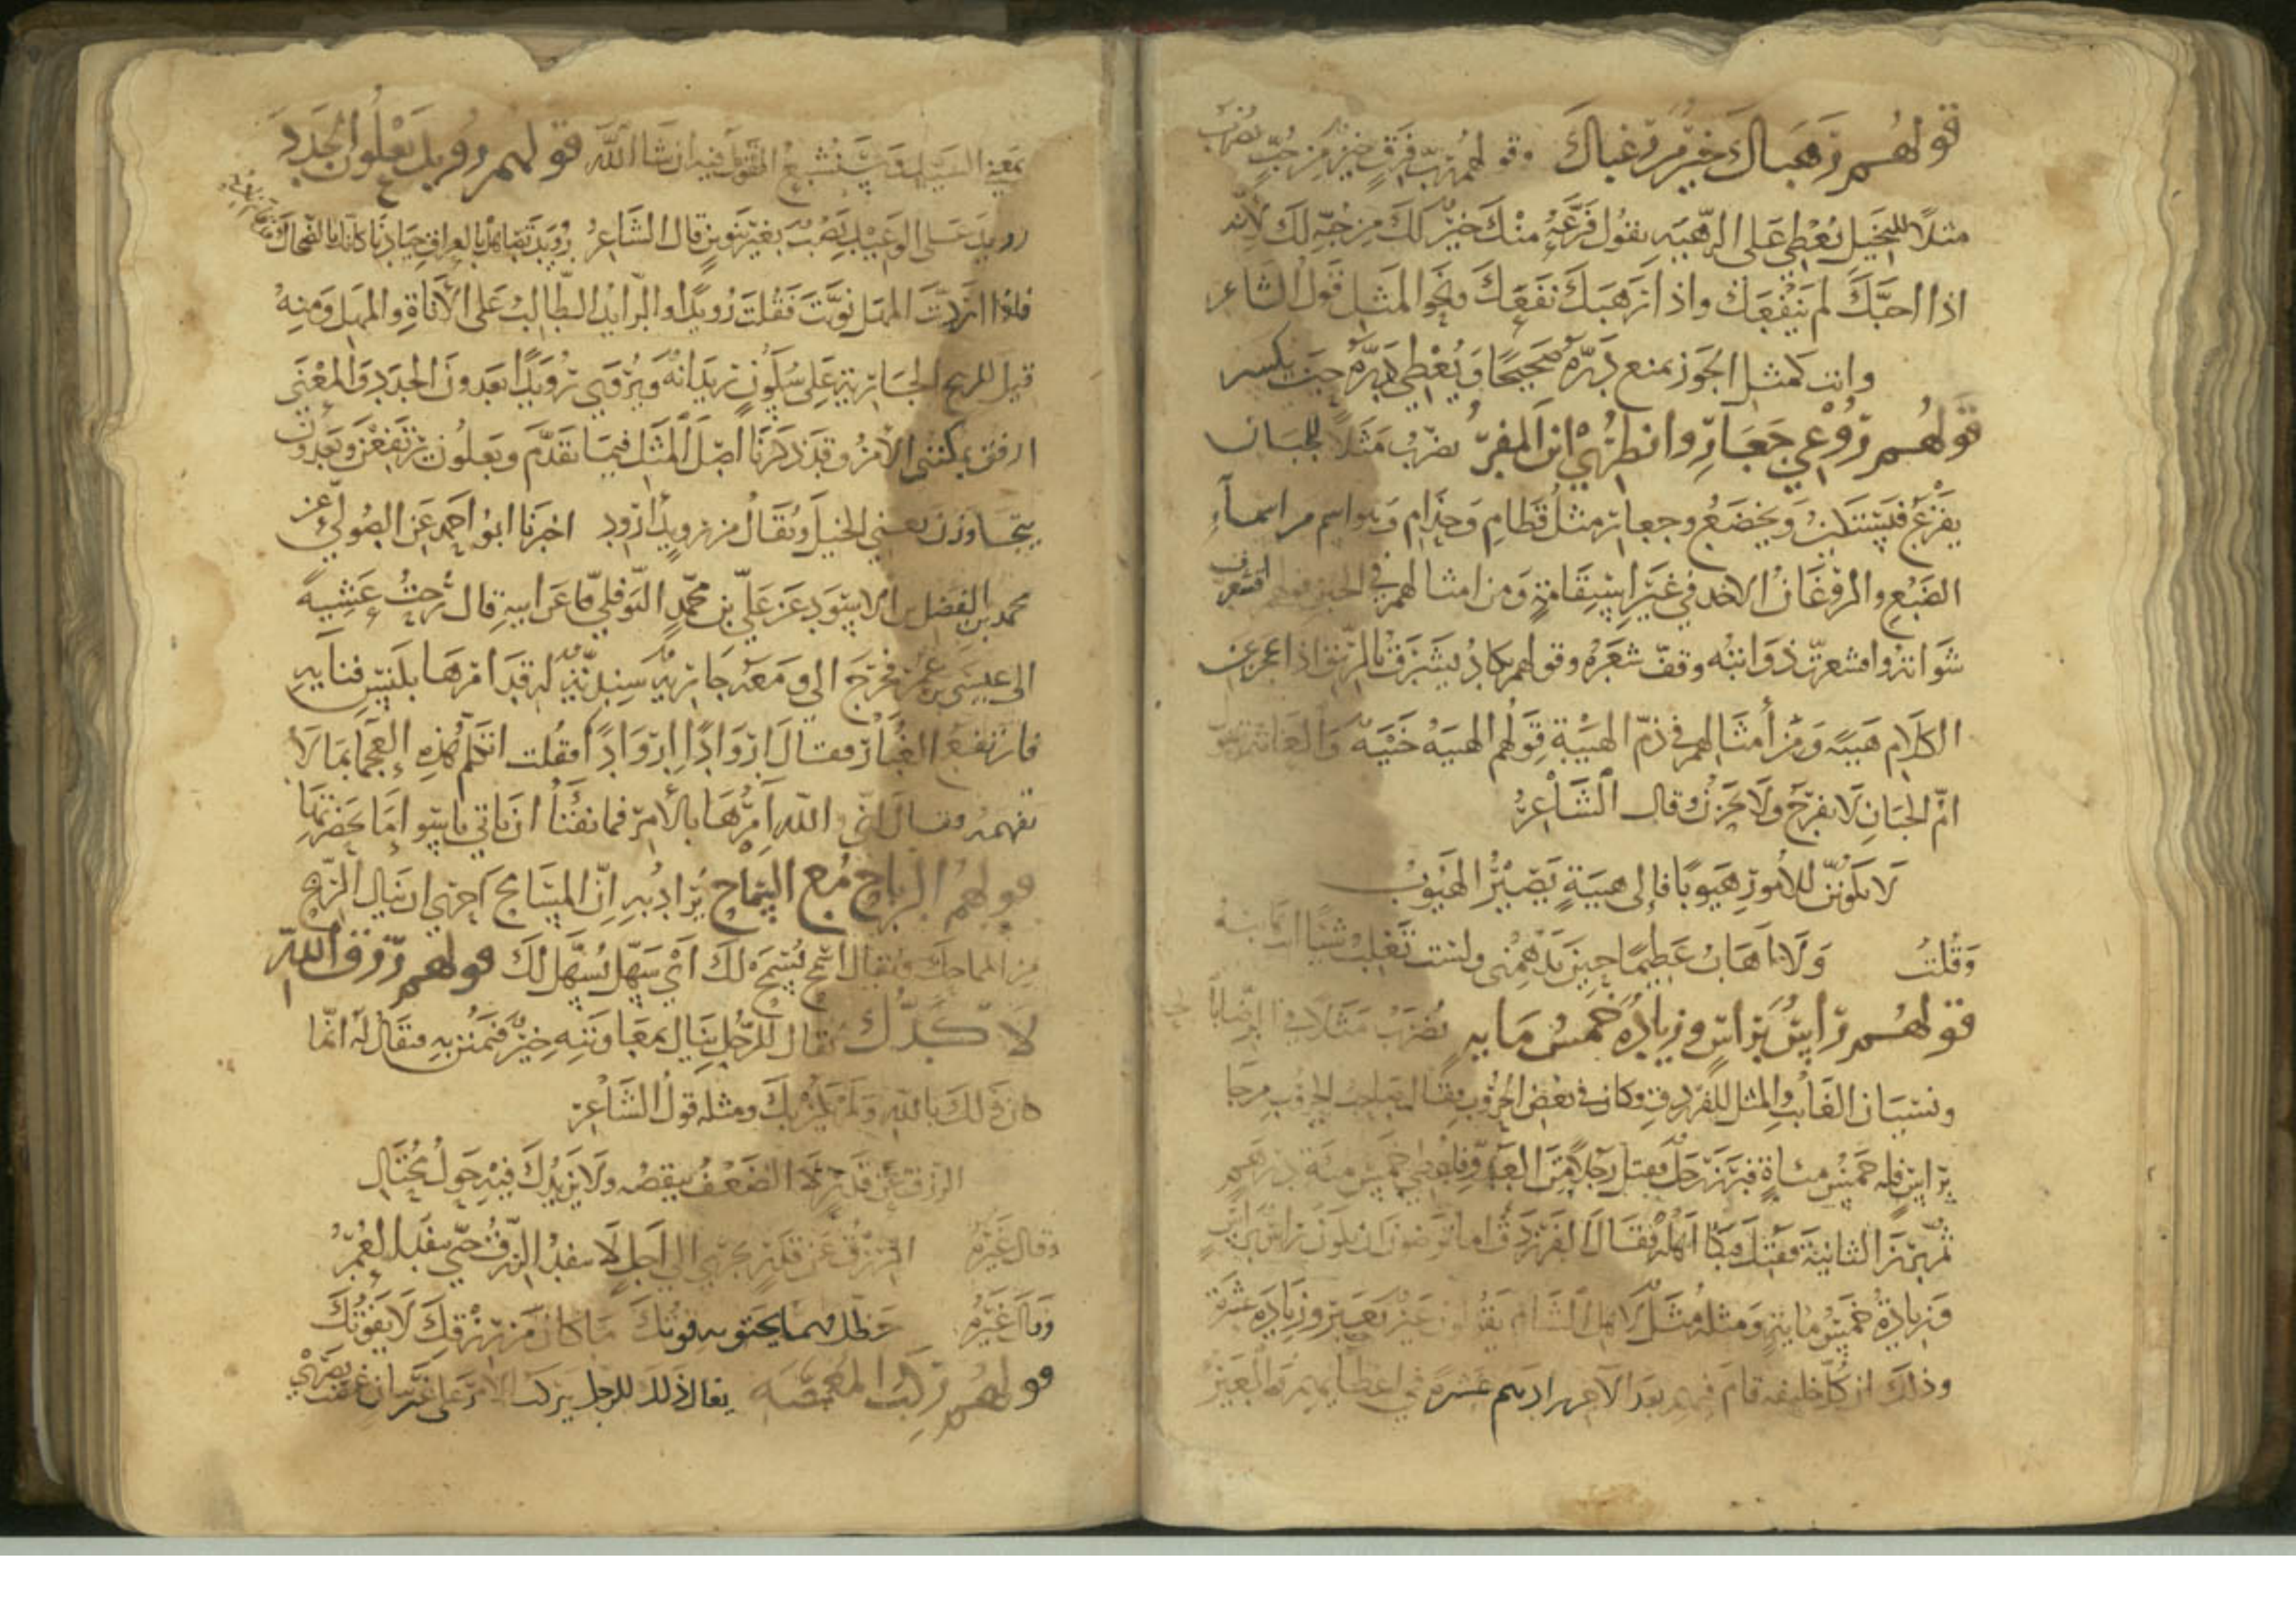 قولهم رهباك خير من رغباك وقولهم رب فرق خير من حب يضرب
مثلا للبخيل يعطي على الرهبة يقول فزعه منك خير لك من حبه لك لأنه
اذا احبك لم ينفعك واذا رهبك نفعك ونحو المثل قول الشاعر
وانت كمثل الجوز يمنع دره صحيحا ويعطي دره حين يكسر
قولهم روعي جعار وانظري اين المفر يضرب مثلا للجبان
يفزع فيستكين ويخضع وجعار مثل قطام وحذام وهو اسم من اسماء
الضبع والروغان الاخذ في غير استقامة ومن امثالهم في الجبن قولهم اقشعرت
شواته واقشعرت ذوائبه وقف شعره وقولهم يكاد يشرق بالريق اذا عجز عن
الكلام هيبة ومن أمثالهم في ذم الهيبة قولهم الهيبة خيبة والعامة تقول
ام الجبان لا تفرح ولا تحزن وقال الشاعر
لا تكونن للامور هيوبا فالى هيبة يصير الهيوب
وقلت ولا اهاب عظيما حين يدهمني ولست تغلب شيئا انت هائبه
قولهم راس براس وزيادة خمس مايه يضرب مثلا في الرضا بالحاضر
ونسيان الغائب والمثل للفرزدق وكان في بعض الحروب فقال صاحب الحرب من جا
براس فله خمس مئاة فبرز رجل فقتل رجلا من العدو فاعطي خمس مئة درهم
ثم برز الثانية فقتل فبكا اهله فقال الفرزدق اما ترضون ان يكون راس براس
وزيادة خمس ماية ومثله مثل لاهل الشام يقولون عير بعير وزيادة عشرة
وذلك ان كل خليفه قام فيهم بعد الآخر زادهم عشرة في اعطياتهم والعير
بمعني السيد وسنشبع القول فيه ان شا الله قولهم رويد يعلون الجدد
رويد على الوعيد نصب بغير تنوين قال الشاعر رويد تصاهل بالعراق جيادنا كانك بالضحاك قد قام نادبه
فاذا اردت المهل نونت فقلت رويدا والرايد الطالب على الاناة والمهل ومنه
قيل للريح الجارية على سكون ريدانة ويروي رويدا يعدون الجدد والمعنى
ارفق يمكنك الامر وقد ذكرنا اصل المثل فيما تقدم ويعلون يرتفعن ويعدون
يتجاوزن يعني الخيل ويقال من رويد أرود اخبرنا ابو احمد عن الصولي عن
محمد بن الفضل بن الاسود عن علي بن محمد النوفلي عن ابيه قال رحت عشية
الى عيسى بن عمر فخرج الي ومعه جارية سندية له قد امرها بكنس فنايه
فارتفع الغبار فقال اروادا اروادا فقلت اتكلم هذه العجما بما لا
تفهمه فقال اني والله امرها بالامر فما تفتأ ان تاتي
قولهم الرباح مع السماح يراد به ان المسامح احرى ان ينال الربح
من المماحك ويقال اسمح يسمح لك أي سهل يسهل لك قولهم رزق الله
لا كدك يقال للرجل ينال بمعاونته خير فيمنن به فيقال له انما
كان ذلك بالله ولم يكن بك ومثله قول الشاعر
الرزق عن قدر لا الضعف ينقصه ولا يزيدك فيه حول محتال
وقال غيره الرزق عن قدر يجري الي اجل لا ينفد الرزق حتي ينفد العمر
وقال غيره حظك مما يحتويه قوتك ما كان من رزقك لا يفوتك
قولهم ركب المغمضة يقال ذلك للرجل يركب الامر على غير بيان